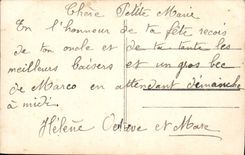 Chère Petite Marie
En l'honneur de ta fête reçois
de ton oncle et de ta tante les
meilleurs baisers et un gros bec
de Marco en attendant dimanche
à midi
Hélène Octave et Marc